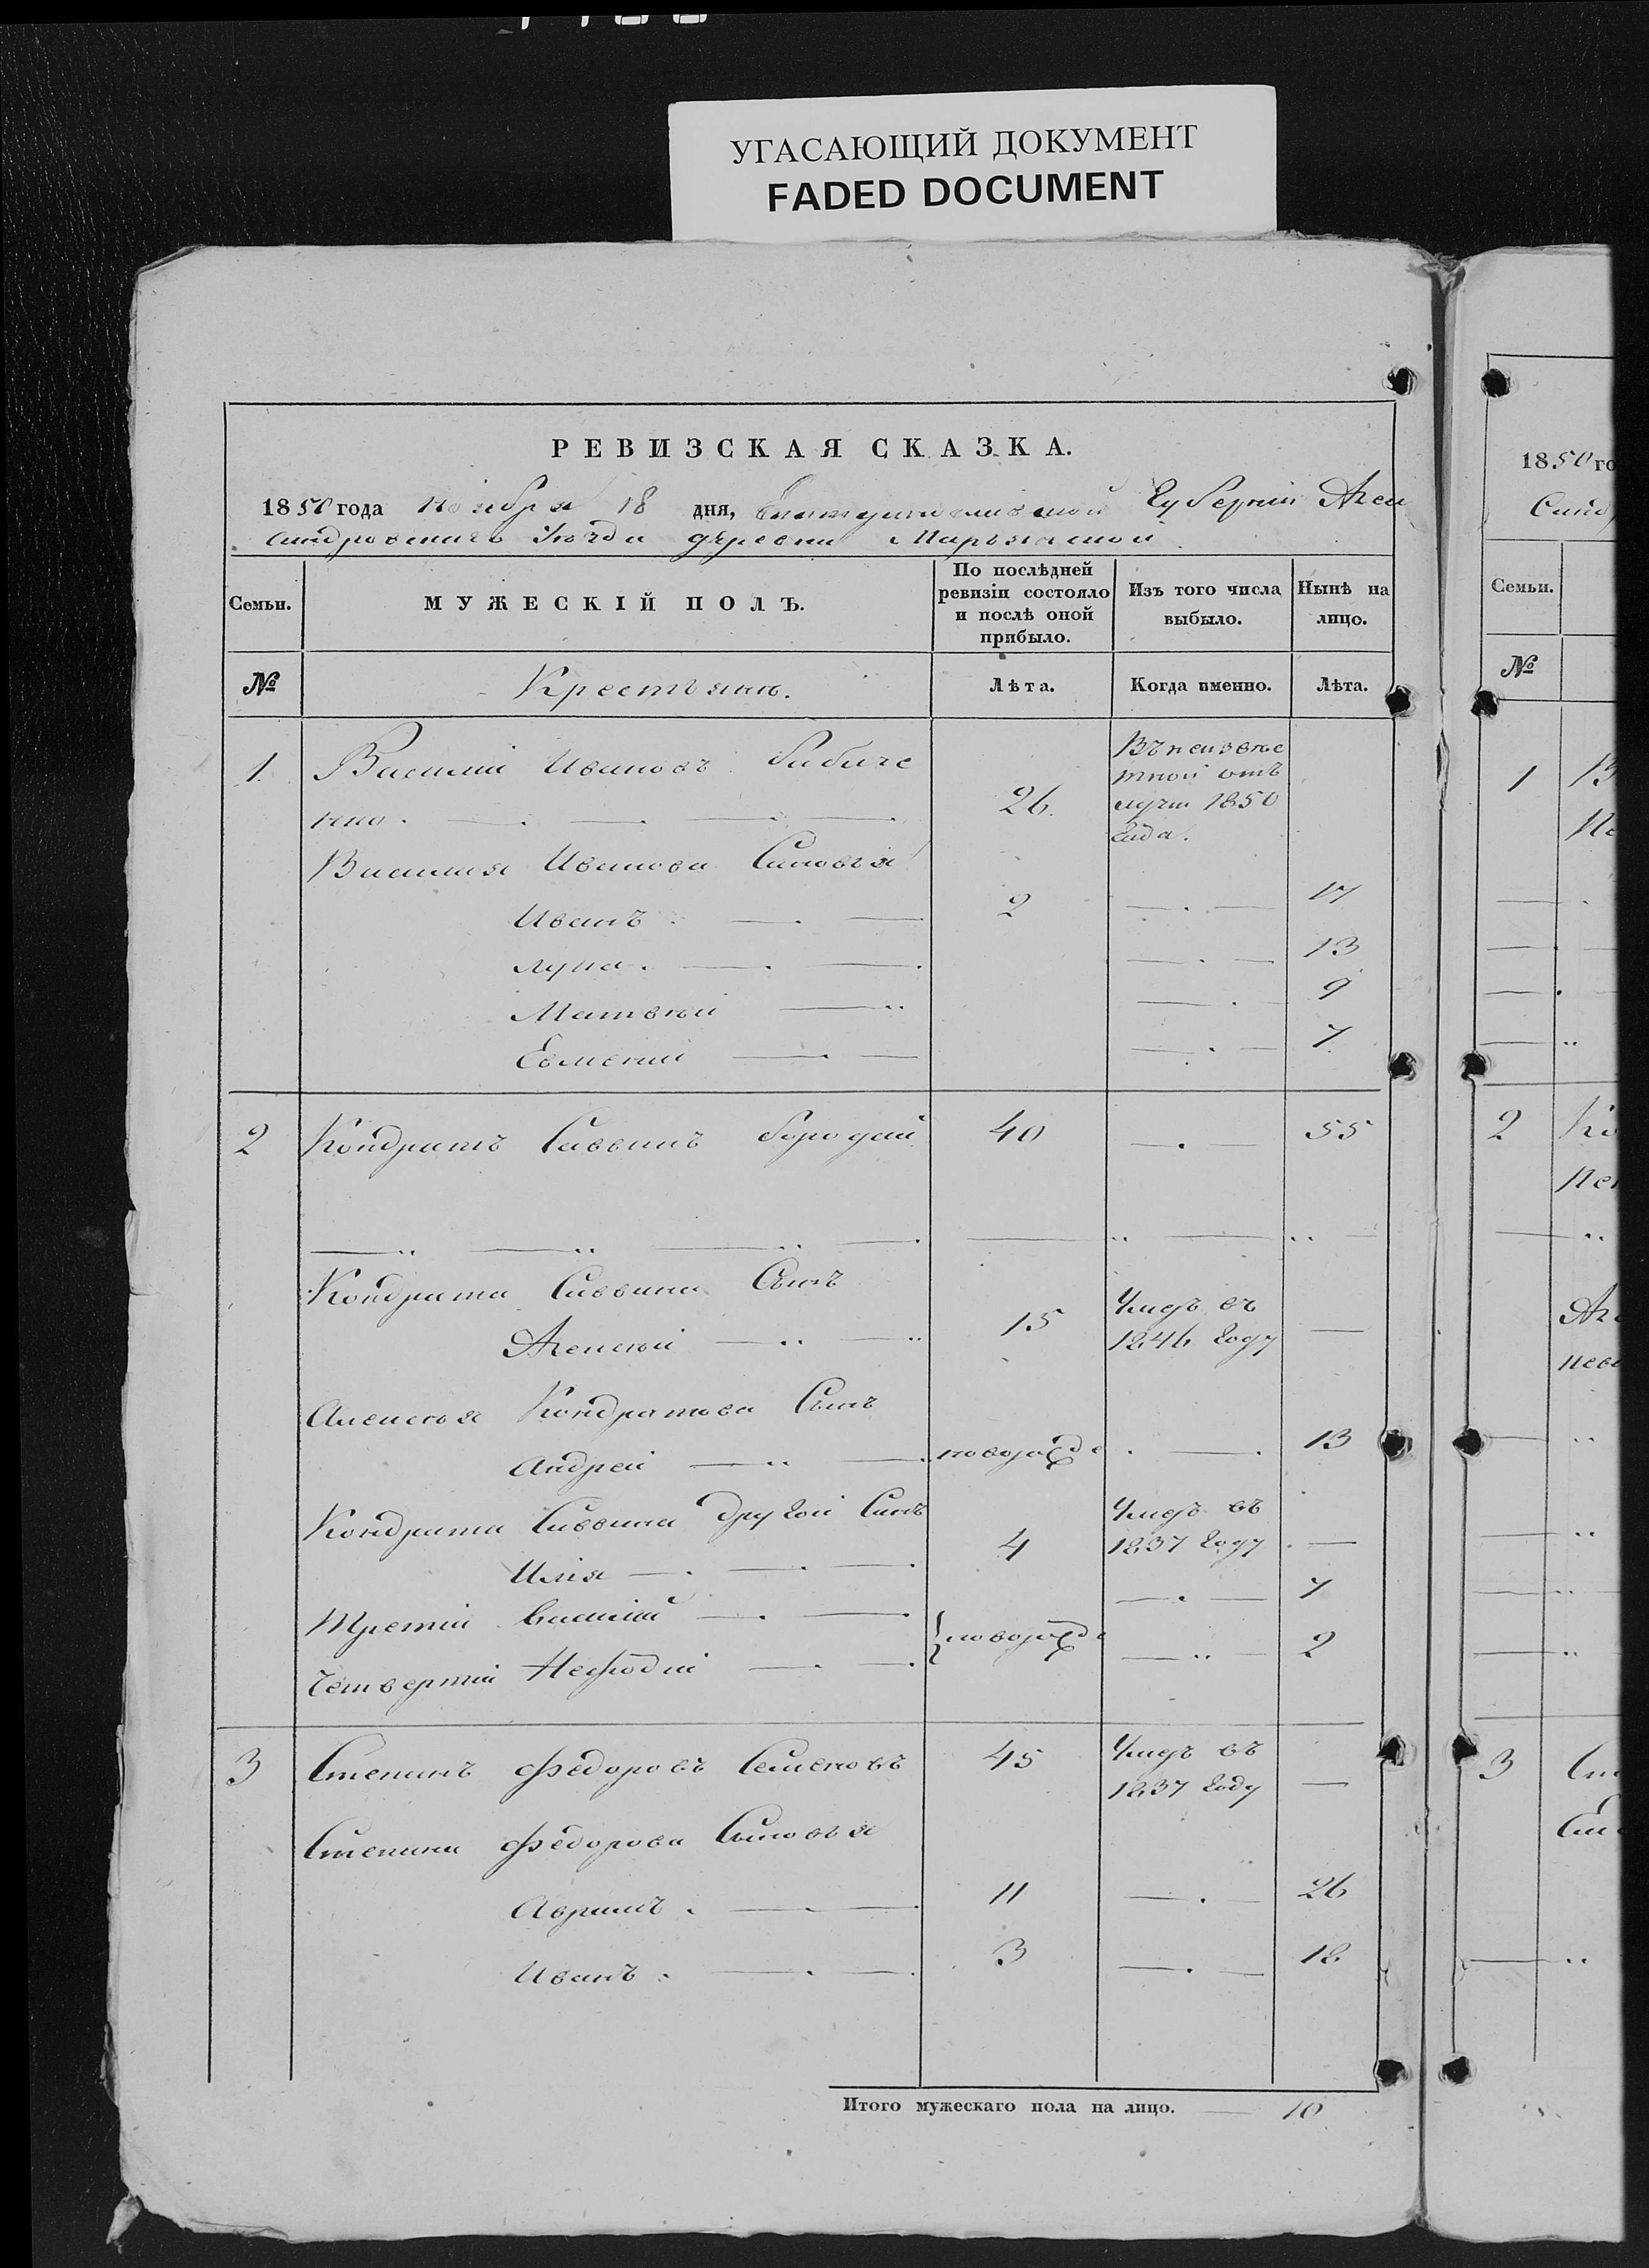 УГАСАЮЩИЙ ДОКУМЕНТ
FADED DOCUMENT
РЕВИЗСКАЯ СКАЗКА.
1850 года ноября 18 дня, Екатеринославской Губерніи Алек
сандровскаго Уѣзда деревни
Семьи. МУЖЕСКІЙ ПОЛЪ. По послѣдней ревизіи состояло и послѣ оной прибыло. Изъ того числа выбыло. Нынѣ на лицо.
№ Крестьяне. Лѣта. Когда именно. Лѣта.
1. Василій Ивановъ Бабиче
нко. 26. Въ неизвѣс
тной отъ
лучки 1850
года.
Василія Иванова Сыновья
Иванъ. 2 17
Лука. 13
Матвѣй 9
Евменій 7
2 Кондратъ Саввинъ Бородай 40 55
Кондрата Саввина Сынъ
Алексѣй 15 Умеръ въ
1846 году
Алексѣя Кондратова Сынъ
Андрей новорожде 13
Кондрата Саввина другой Сынъ
Илія 4 Умеръ въ
1837 году
Третій Василій 7
новорожде
Четвертій Мефодій 2
3 Степанъ Федоровъ Семеновъ 45 Умеръ въ
1837 году
Степана Федорова Сыновья
Аврамъ. 11 26
Иванъ. 3 18
Итого мужескаго пола на лицо. 10
1850 го
Санд
Семьи.
№
1 В
2 Ко
Але
3 Сте